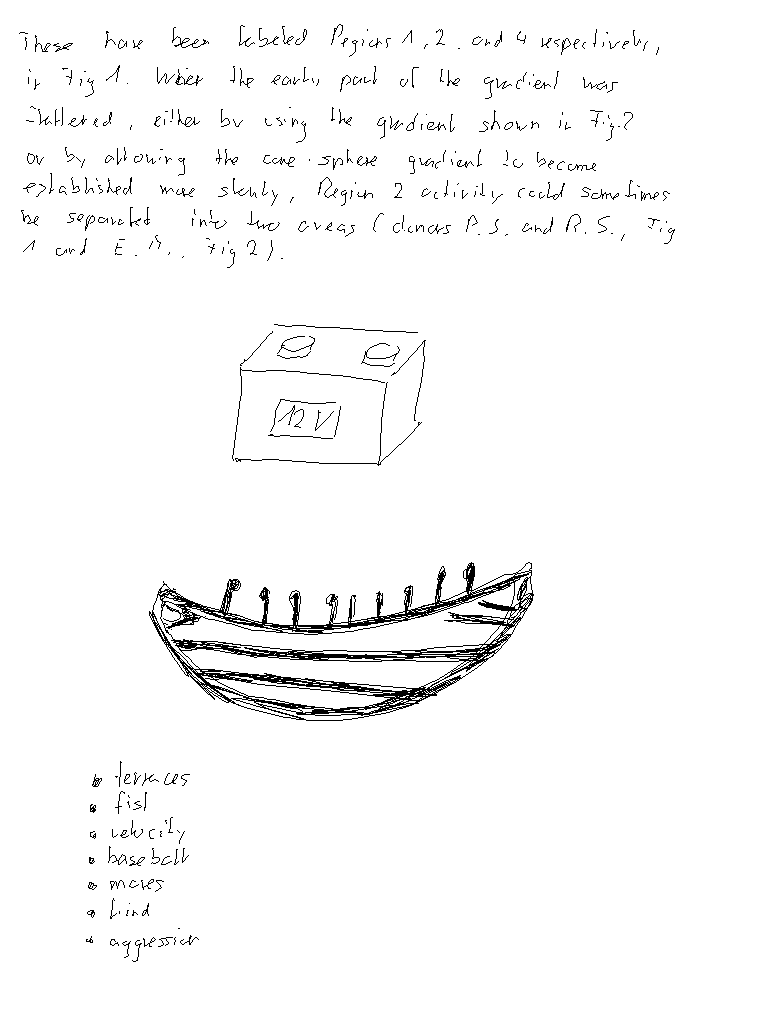 These have been labeled Regions 1, 2, and 4 respectively,
in Fig 1. When the early part of the gradient was
flattered, either by using the gradient shown in Fig. 2
or by allowing the cone-sphere gradient to become
established more slowly, Region 2 activity could sometimes
be separated into two areas (donors P. S. and R. S., Fig
1 and E. M., Fig 2).
12 V
terraces
fist
velocity
baseball
moves
hind
aggression